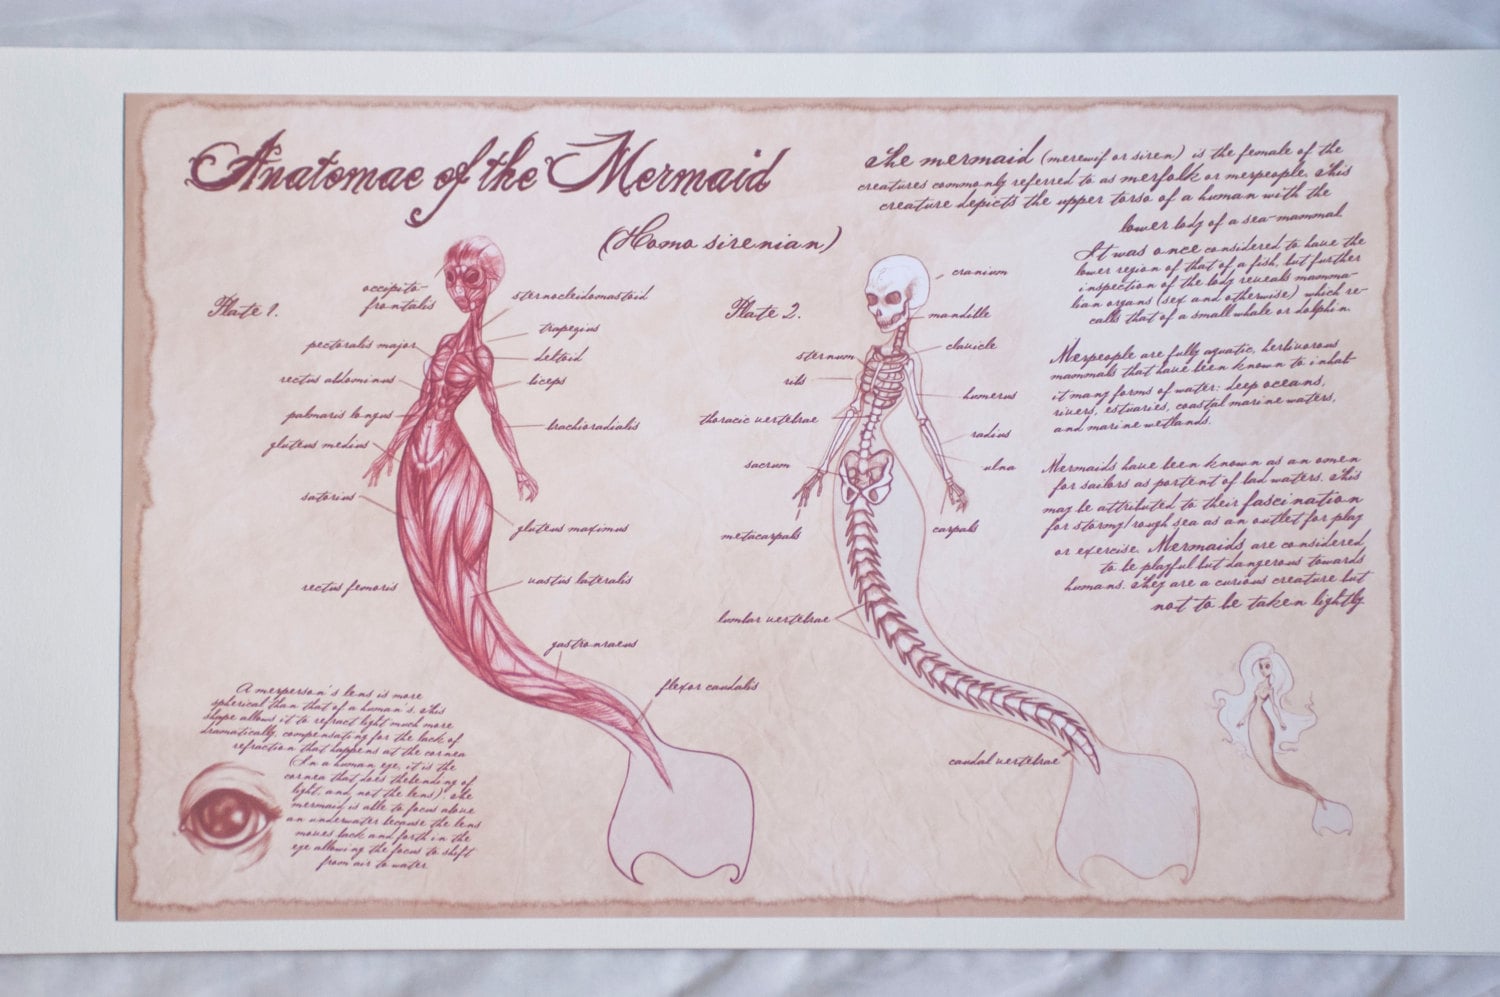 Anatomae of the Mermaid
(Homo sirenian)
Plate 1.
occipito-
frontalis
sternocleidomastoid
trapezius
pectoralis major
deltoid
rectus abdominus
biceps
palmaris longus
brachioradialis
gluteus medius
satorius
gluteus maximus
rectus femoris
vastus lateralis
gastrocnaeus
flexor caudalis
A merperson's lens is more
spherical than that of a human's. This
shape allows it to refract light much more
dramatically, compensating for the lack of
refraction that happens at the cornea
(In a human eye, it is the
cornea that does the bending of
light, and not the lens). The
mermaid is able to focus above
an underwater because the lens
moves back and forth in the
eye allowing the focus to shift
from air to water.
Plate 2.
cranium
mandible
clavicle
sternum
ribs
humerus
thoracic vertebrae
radius
sacrum
ulna
metacarpals
carpals
lumbar vertebrae
caudal vertebrae
The mermaid (merewif or siren) is the female of the
creatures commonly referred to as merfolk or merpeople. This
creature depicts the upper torso of a human with the
lower body of a sea-mammal.
It was once considered to have the
lower region of that of a fish, but further
inspection of the body reveals mamma-
lian organs (sex and otherwise) which re-
calls that of a small whale or dolphin.
Merpeople are fully aquatic, herbivorous
mammals that have been known to inhab-
it many forms of water: deep oceans,
rivers, estuaries, coastal marine waters,
and marine wetlands.
Mermaids have been known as an omen
for sailors as portent of bad waters. This
may be attributed to their fascination
for stormy/rough sea as an outlet for play
or exercise. Mermaids are considered
to be playful but dangerous towards
humans. They are a curious creature but
not to be taken lightly.